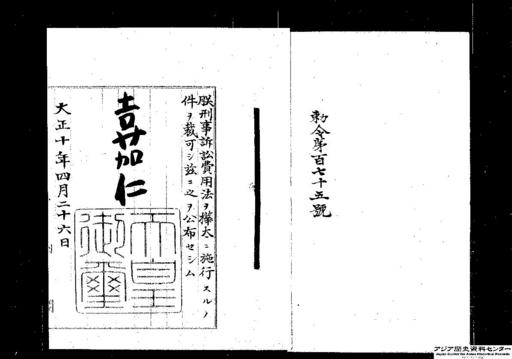 勅令第百七十五號
朕刑事訴訟費用法ヲ樺太ニ施行スルノ
件ヲ裁可シ玆ニ之ヲ公布セシム
嘉仁
天皇
御璽
大正十年四月二十六日
アジア歴史資料センター
Japan Center for Asian Historical Records